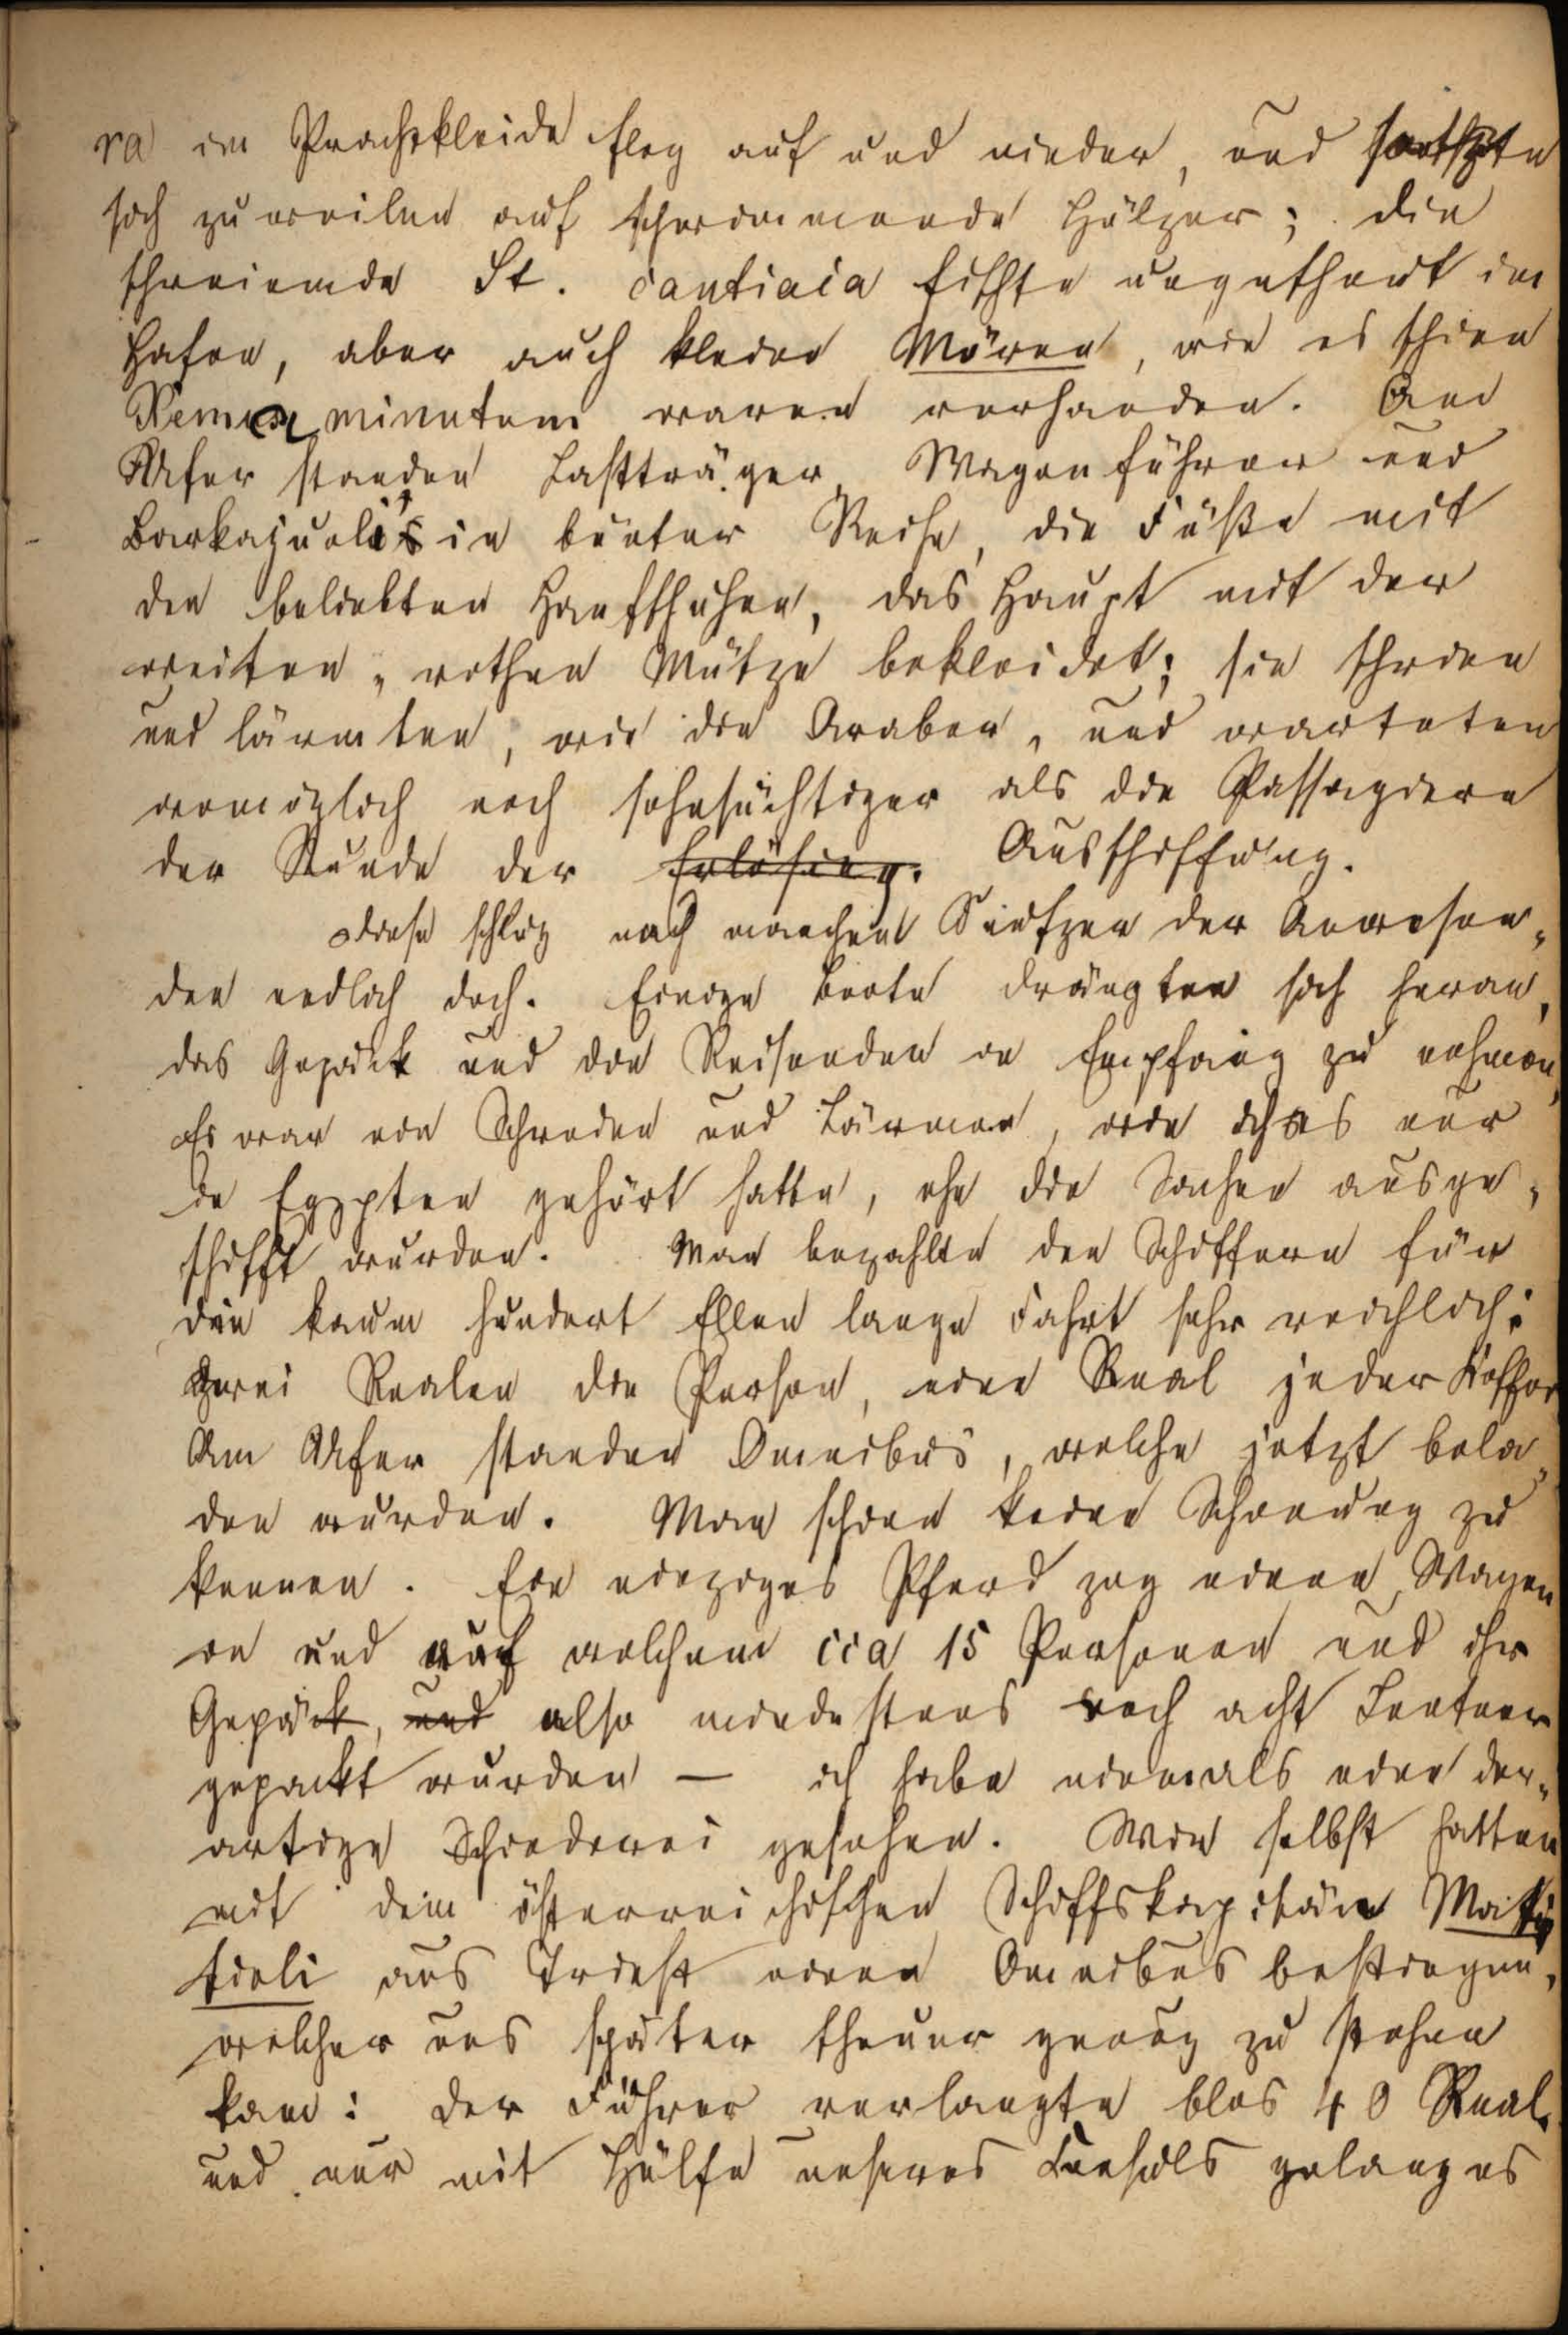 ra im Prachtkleide flog auf und nieder, und setzte
sich zuweilen auf schwimmende Hölzer; die
schreiende St. cantiaca fischte ungestört im
Hafen, aber auch kleine Möven, wie es schien
minutum waren vorhanden. Am
Ufer standen Lastträger, Wagenführer und
Barkajuoli's in bunter Reihe, die Füße mit
den beliebten Hanfschuhen, das Haupt mit der
weiten, rothen Mütze bekleidet; sie schrien
und lärmten, wie die Araber, und warteten
womöglich noch sehnsüchtiger als die Passagiere
der Stunde der Erlösung. Ausschiffung.
Diese schlug nach manchen Seufzern der Anwesen„
den endlich doch. Einige Boote drängten sich heran,
das Gepäck und die Reisenden in Empfang zu nehmen,
Es war ein Schreien und Lärmen, wie ich es nur
in Egypten gehört hatte, ehe die Sachen ausge„
schifft wurden. Man bezahlte den Schiffern für
die kaum hundert Ellen lange Fahrt sehr reichlich:
zwei Realen die Person, einen Real jeder Koffer
Am Ufer standen Omnibus, welche jetzt bela„
den wurden. Man schien keine Schonung zu
kennen. Ein einziges Pferd zog einen Wagen
in und auf welchem cca 15 Personen und ihr
Gepäck, und also mindestens noch acht Centner
gepackt wurden — ich habe niemals eine der„
artige Schinderei gesehen. Wir selbst hatten
mit dem österreichischen Schiffskapitän Matti
tieli aus Triest einen Omnibus bestiegen,
welcher uns später theuer genug zu stehen
kam: der Führer verlangte blos 40 Real.
und nur mit Hülfe unseres Consuls gelang es